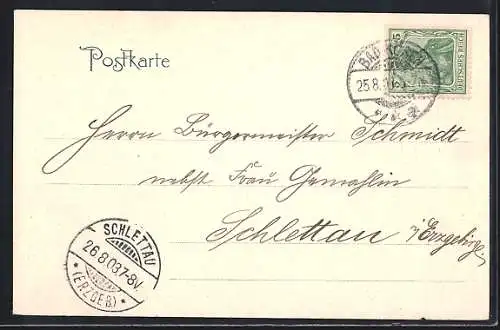 Postkarte
DEUTSCHES REICH
BAD
25.8.
Herrn Bürgermeister Schmidt
nebst Frau Gemahlin
Schlettau i/Erzgebirge.
SCHLETTAU
26.8.03.7-8V.
* (ERZGEB.) *